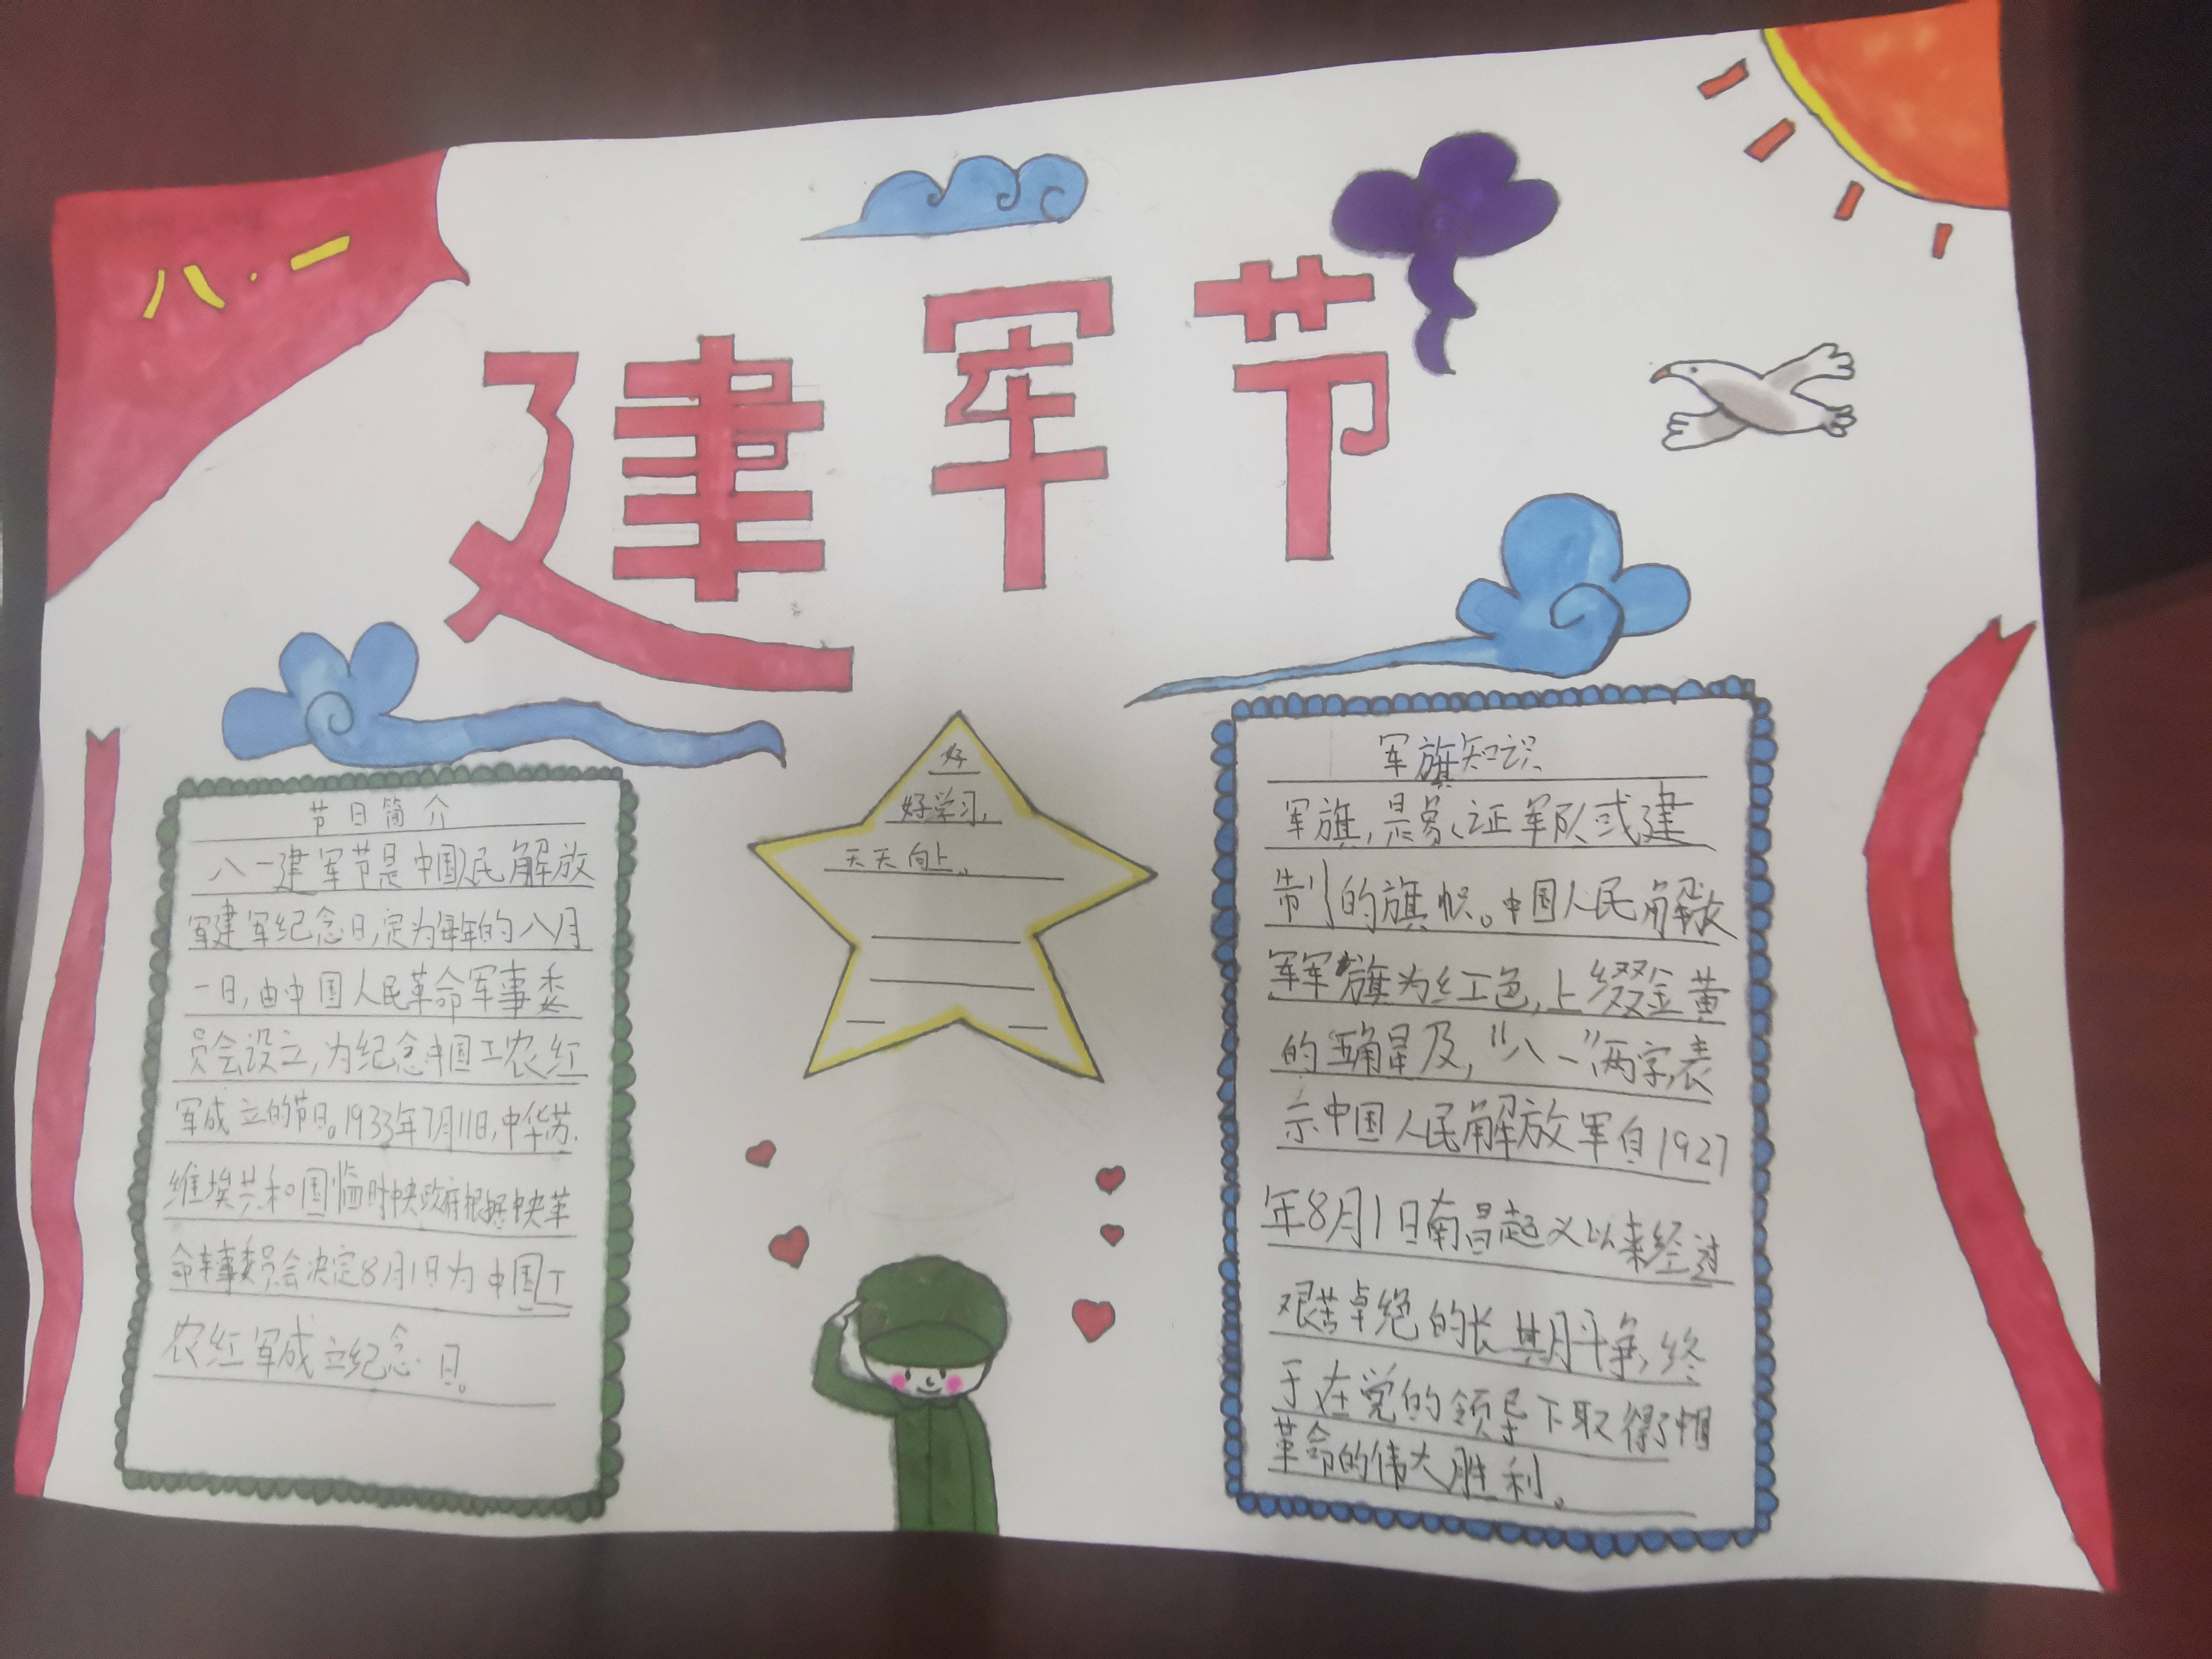 八·一
建军节
节日简介
八一建军节是中国民解放
军建军纪念日,定为每年的八月
一日,由中国人民革命军事委
员会设立,为纪念中国工农红
军成立的节日。1933年7月11日,中华苏
维埃共和国临时中央政府根据中央革
命军事委员会决定8月1日为中国工
农红军成立纪念日。
好
好学习,
天天向上。
军旗知识
军旗,是象征军队或建
制的旗帜。中国人民解放
军军旗为红色,上缀金黄
的五角星及,“八一”两字,表
示中国人民解放军自1927
年8月1日南昌起义以来经过
艰苦卓绝的长期斗争,终
于在党的领导下取得了中国
革命的伟大胜利。